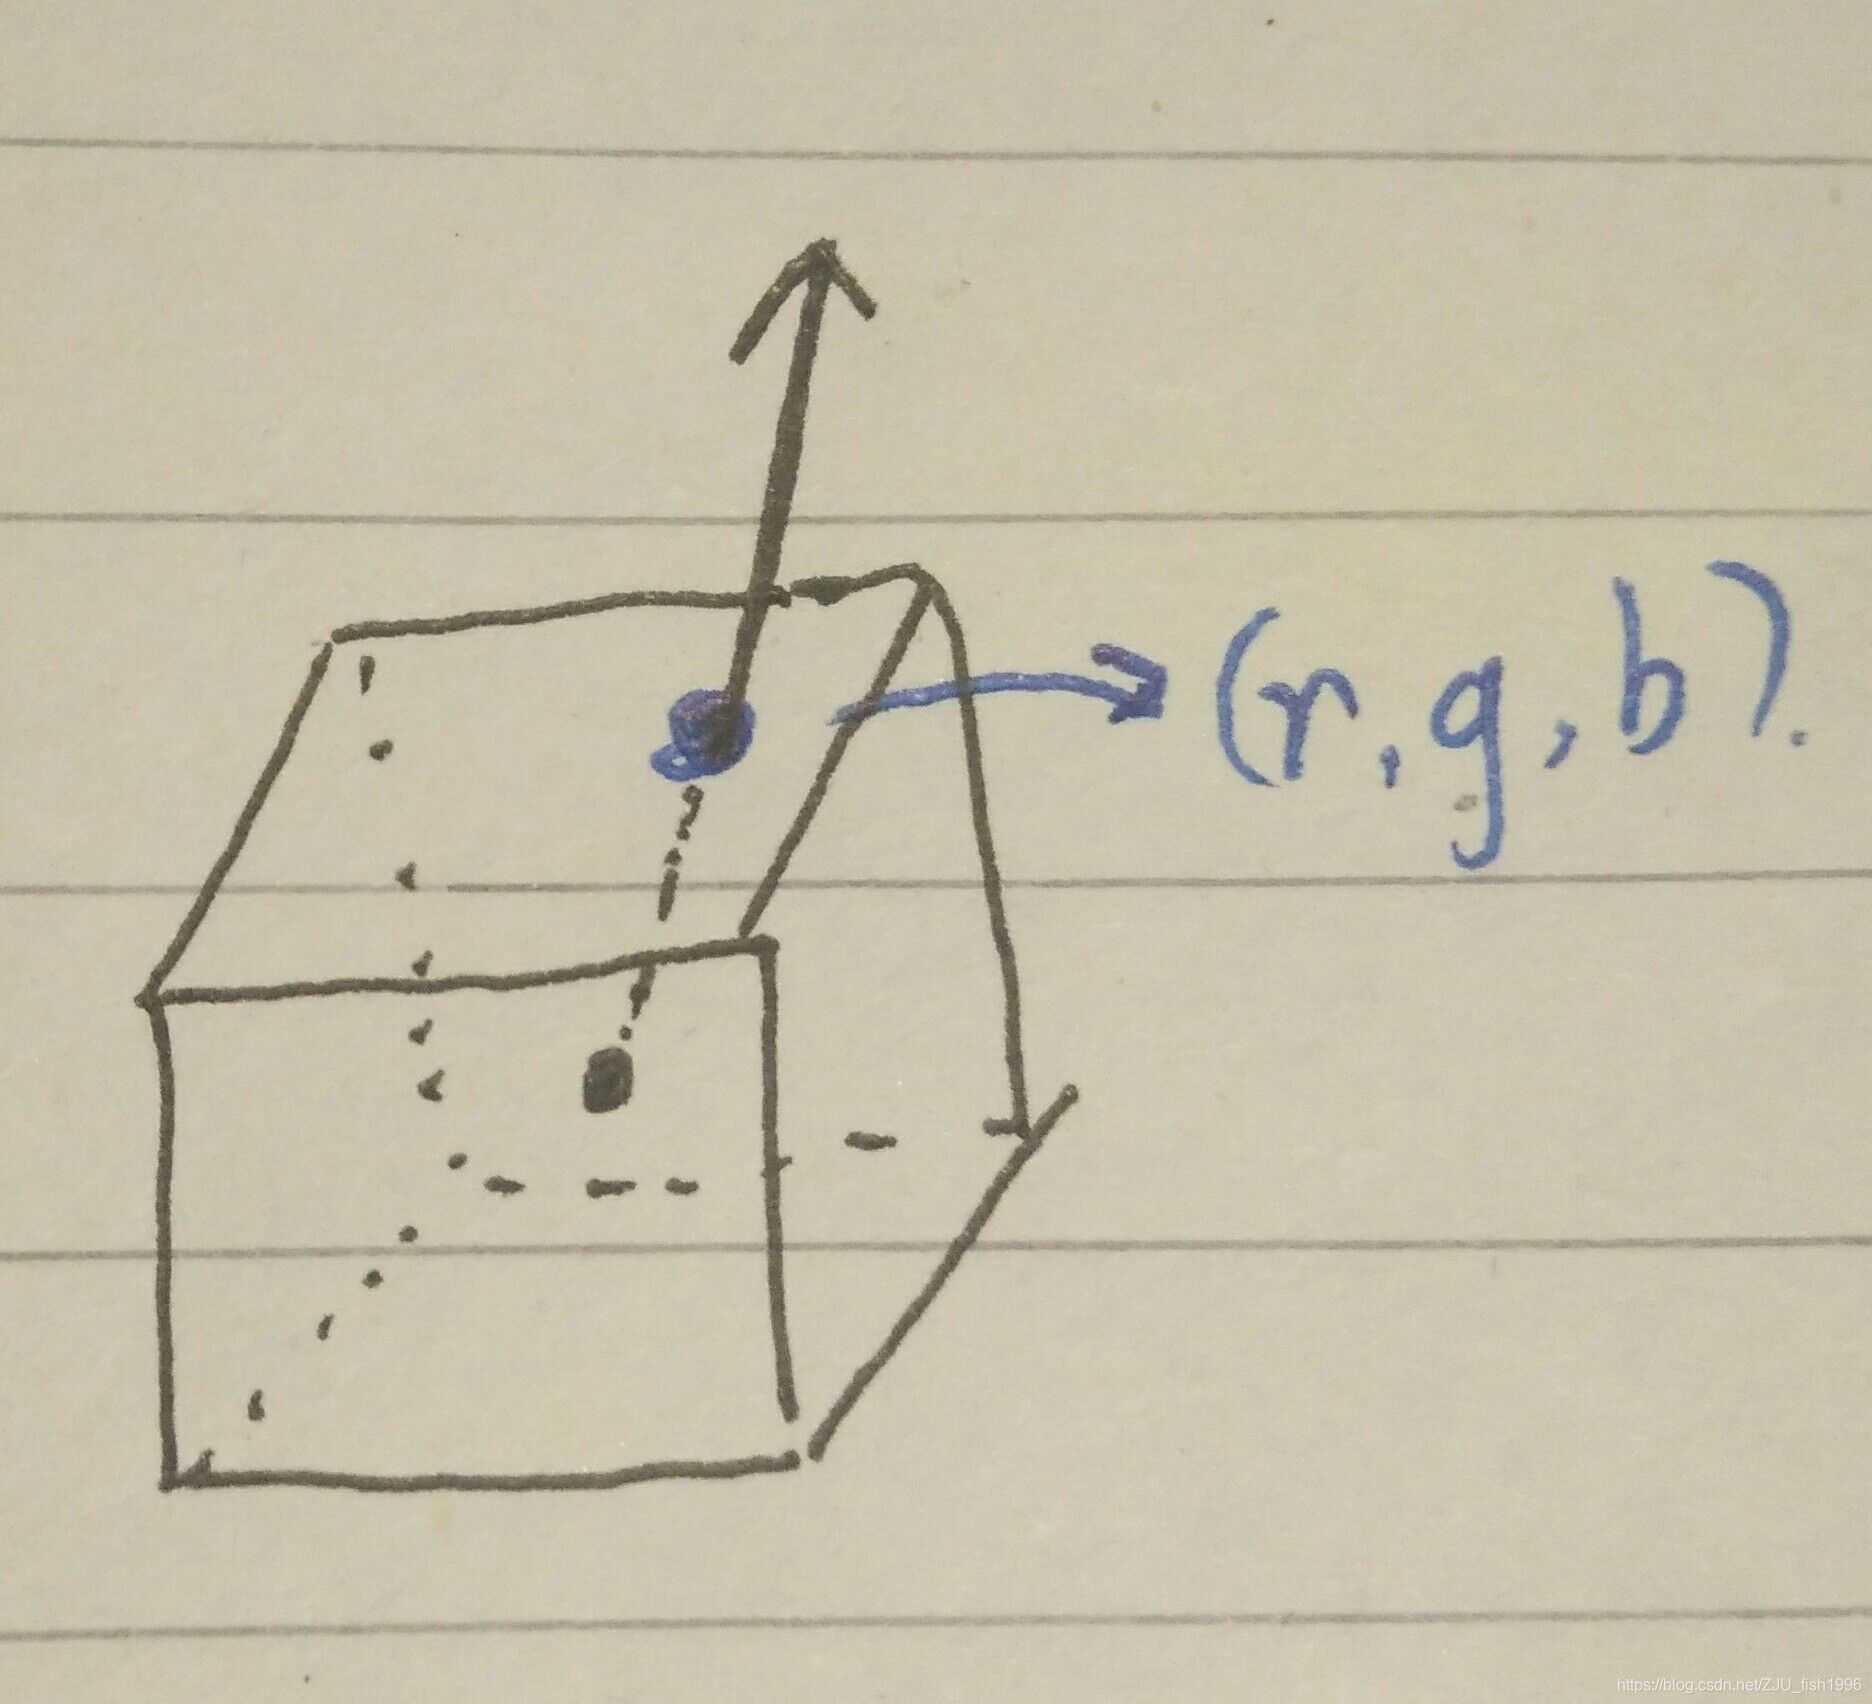 (r,g,b).
https://blog.csdn.net/ZJU_fish1996